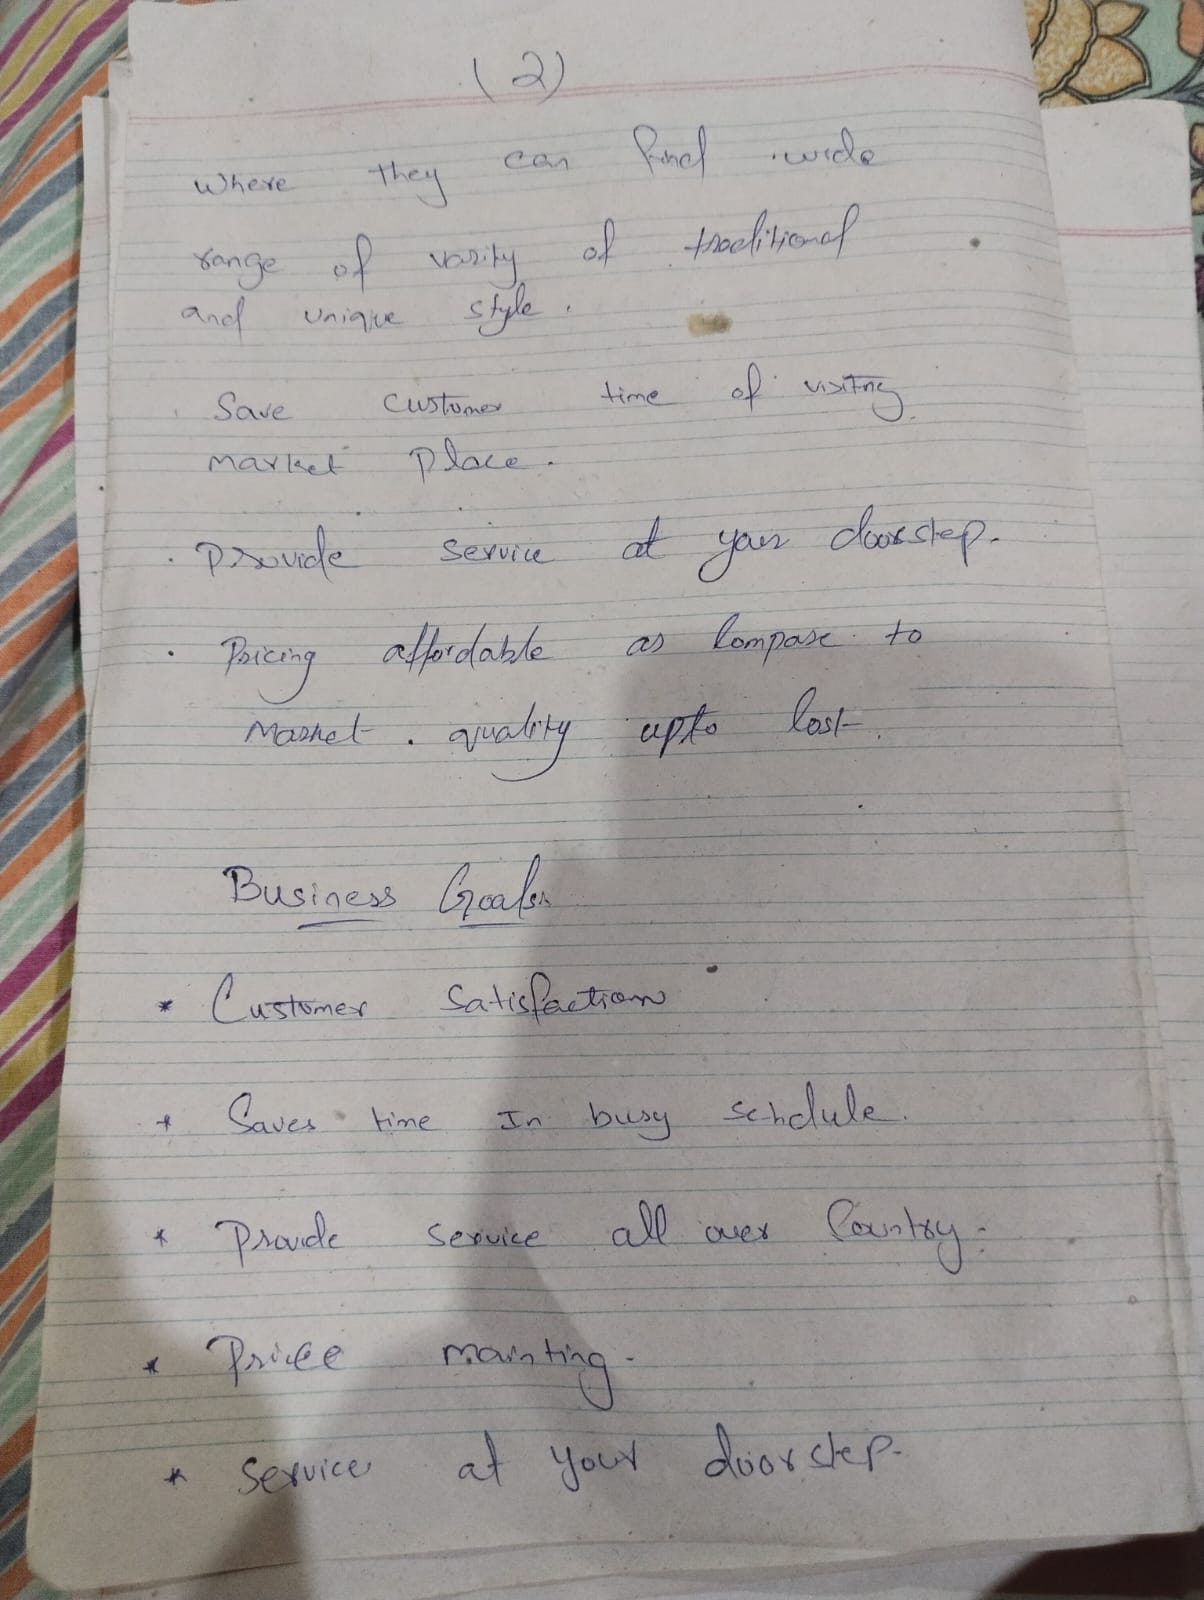 (2)
where they can find wide
range of varity of traditional
and unique style.
Save customer time of visiting
market place.
· Provide service at your doorstep.
· Pricing affordable as Compare to
Market. quality upto
Business Goals
* Customer Satisfaction
* Saves time In busy schdule.
* Provide service all over Country.
* Price mainting.
* Service at your doorstep.